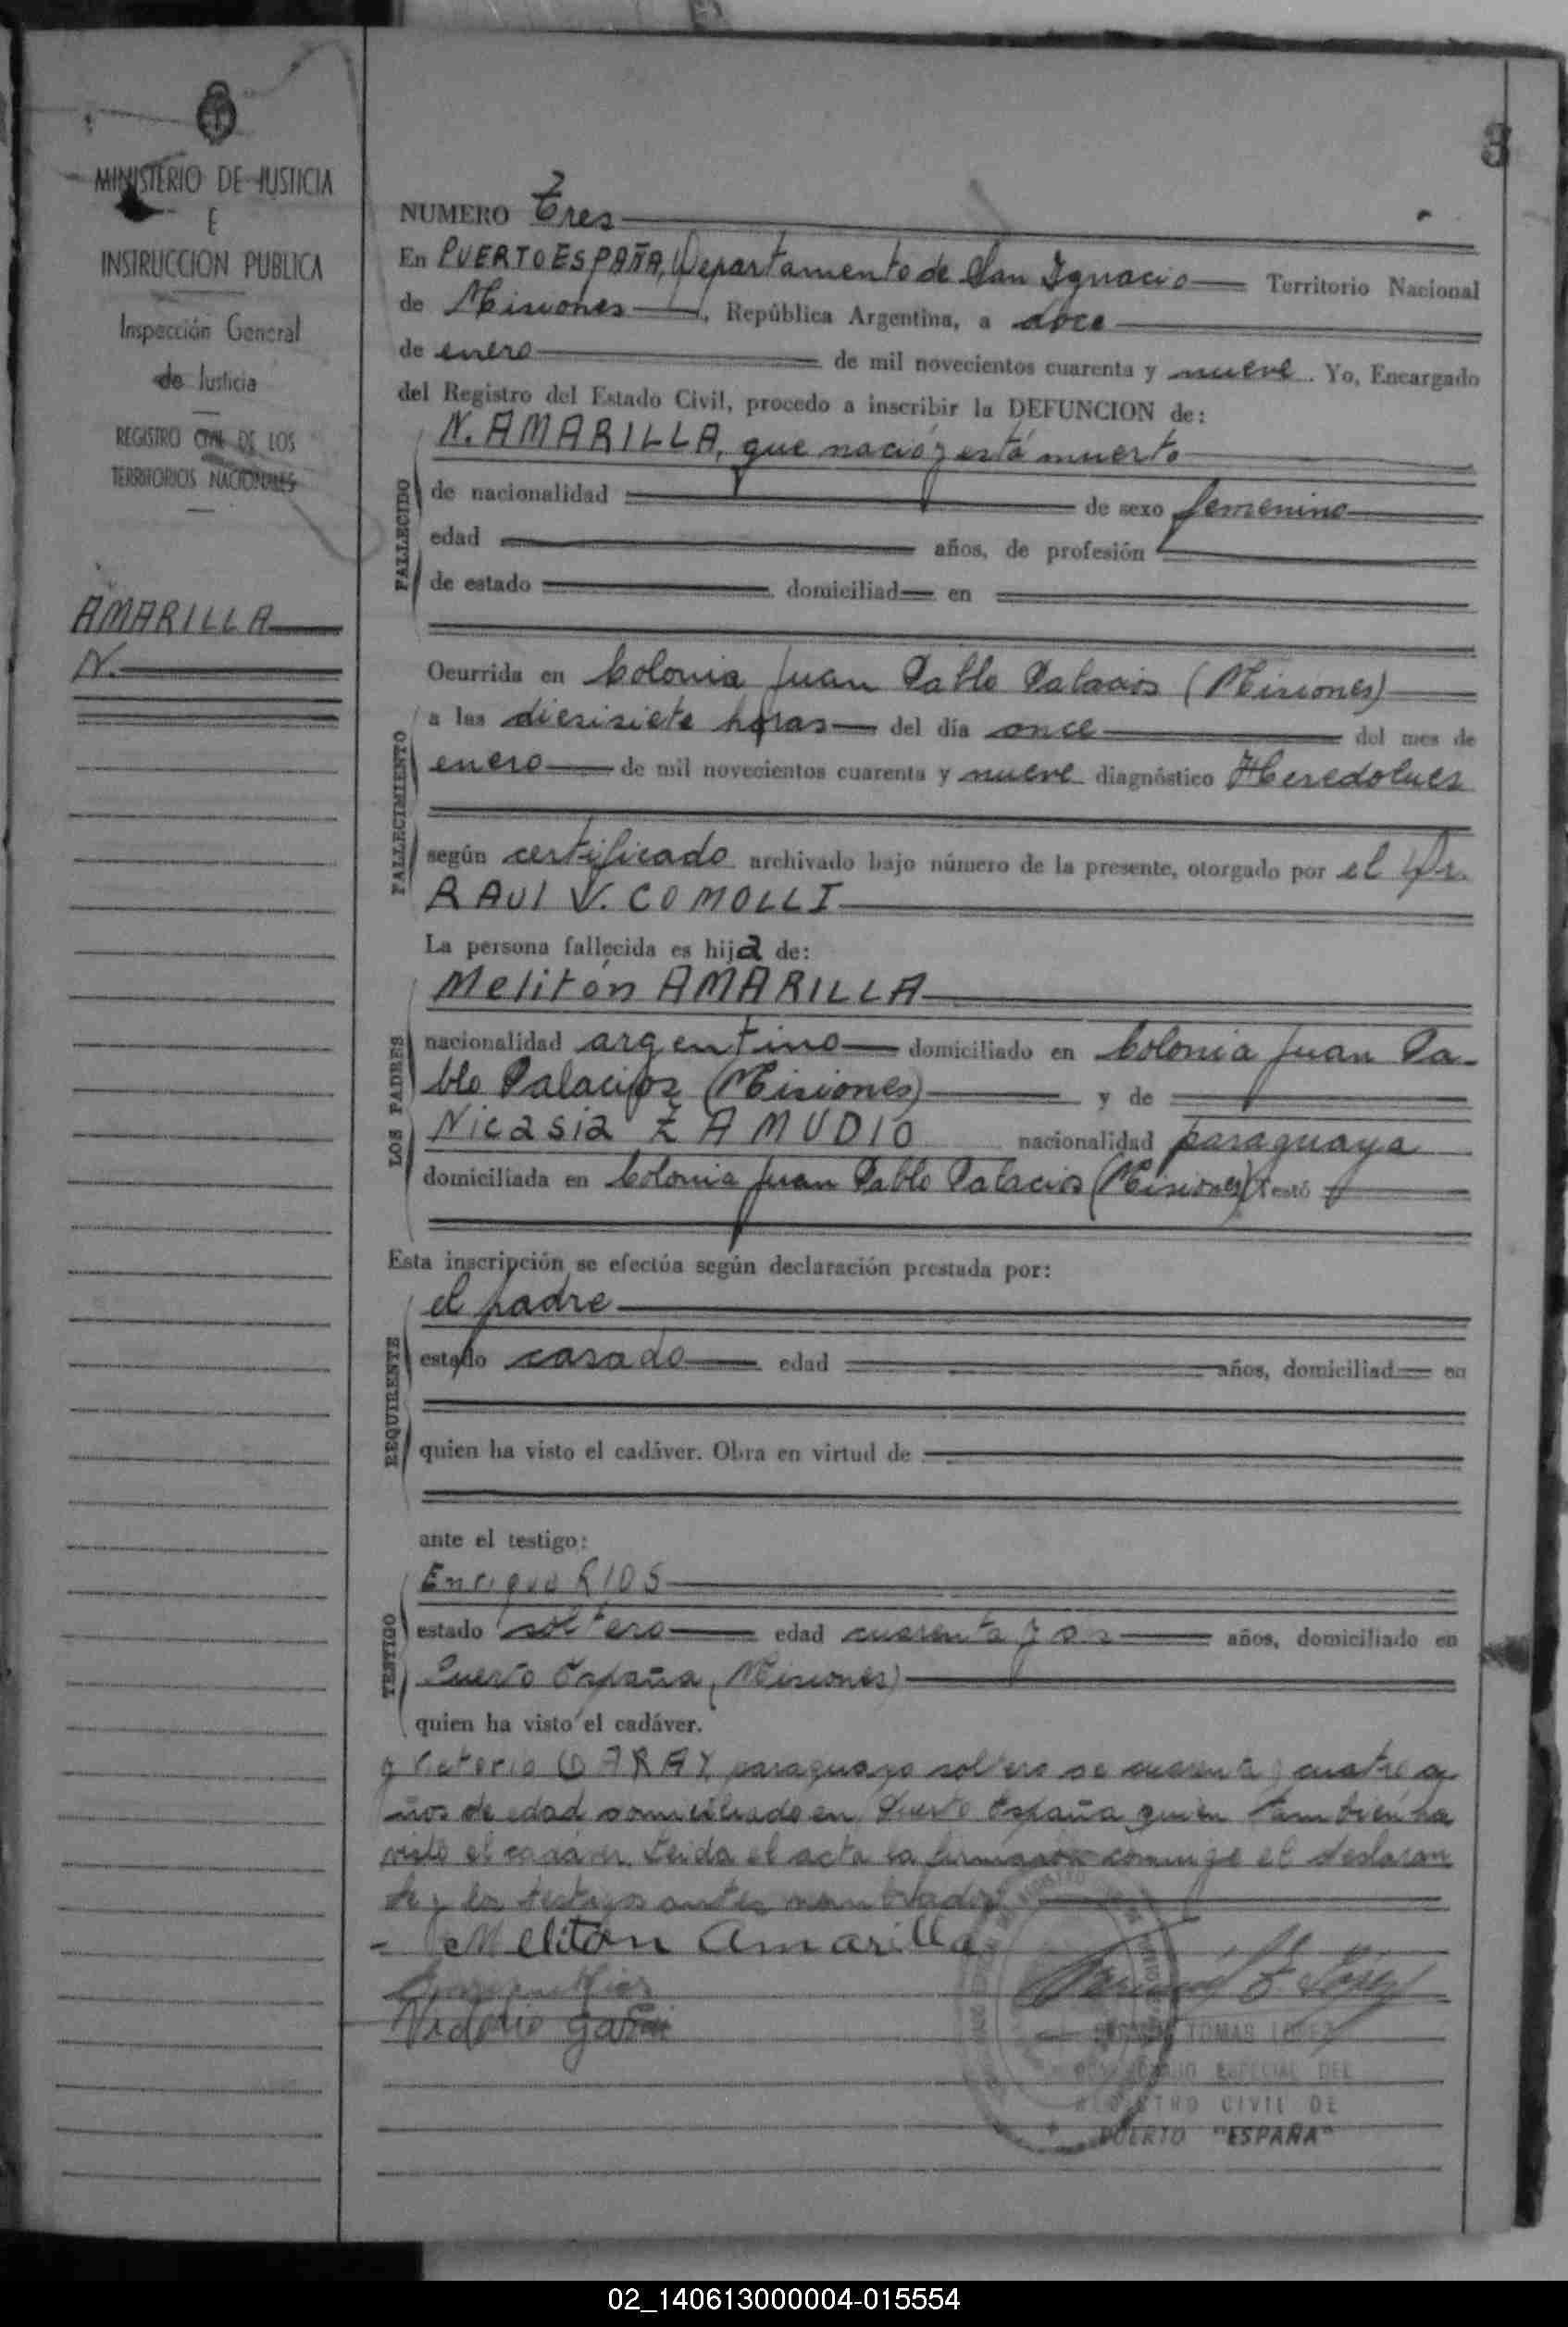 3
MINISTERIO DE JUSTICIA
E
INSTRUCCION PUBLICA
Inspección General
de Justicia
REGISTRO CIVIL DE LOS
TERRITORIOS NACIONALES
AMARILLA
N.
NUMERO Tres
En PUERTO ESPAÑA, Departamento de San Ignacio Territorio Nacional
de Misiones, República Argentina, a doce
de enero de mil novecientos cuarenta y nueve. Yo, Encargado
del Registro del Estado Civil, procedo a inscribir la DEFUNCION de:
N. AMARILLA, que nació y está muerto
FALLECIDO
de nacionalidad de sexo femenino
edad años, de profesión
de estado domiciliad en
Ocurrida en Colonia Juan Pablo Palacios (Misiones)
FALLECIMIENTO
a las diesisiete horas del día once del mes de
enero de mil novecientos cuarenta y nueve diagnóstico Heredolues
según certificado archivado bajo número de la presente, otorgado por el Dr.
RAUl V. COMOLLI
La persona fallecida es hija de:
LOS PADRES
Melitón AMARILLA
nacionalidad argentino domiciliado en Colonia Juan Pa-
blo Palacios (Misiones) y de
Nicasia ZAMUDIO nacionalidad paraguaya
domiciliada en Colonia Juan Pablo Palacios (Misiones) Testó
Esta inscripción se efectúa según declaración prestada por:
REQUIRENTE
el padre
estado casado edad años, domiciliad en
quien ha visto el cadáver. Obra en virtud de
ante el testigo:
TESTIGO
Enrique RIOS
estado soltero edad cuarenta y dos años, domiciliado en
Puerto España, (Misiones)
quien ha visto el cadáver.
y paraguayo soltero de cuarenta y cuatro a
ños de edad domiciliado en Puerto España quien tambien ha
visto el cadáver. Leida el acta la firmaron conmigo el declaran
te y los testigos antes nombrados
Melitón Amarilla
TOMAS LOPEZ
ESPECIAL DEL
REGISTRO CIVIL DE
PUERTO "ESPAÑA"
02_140613000004-015554